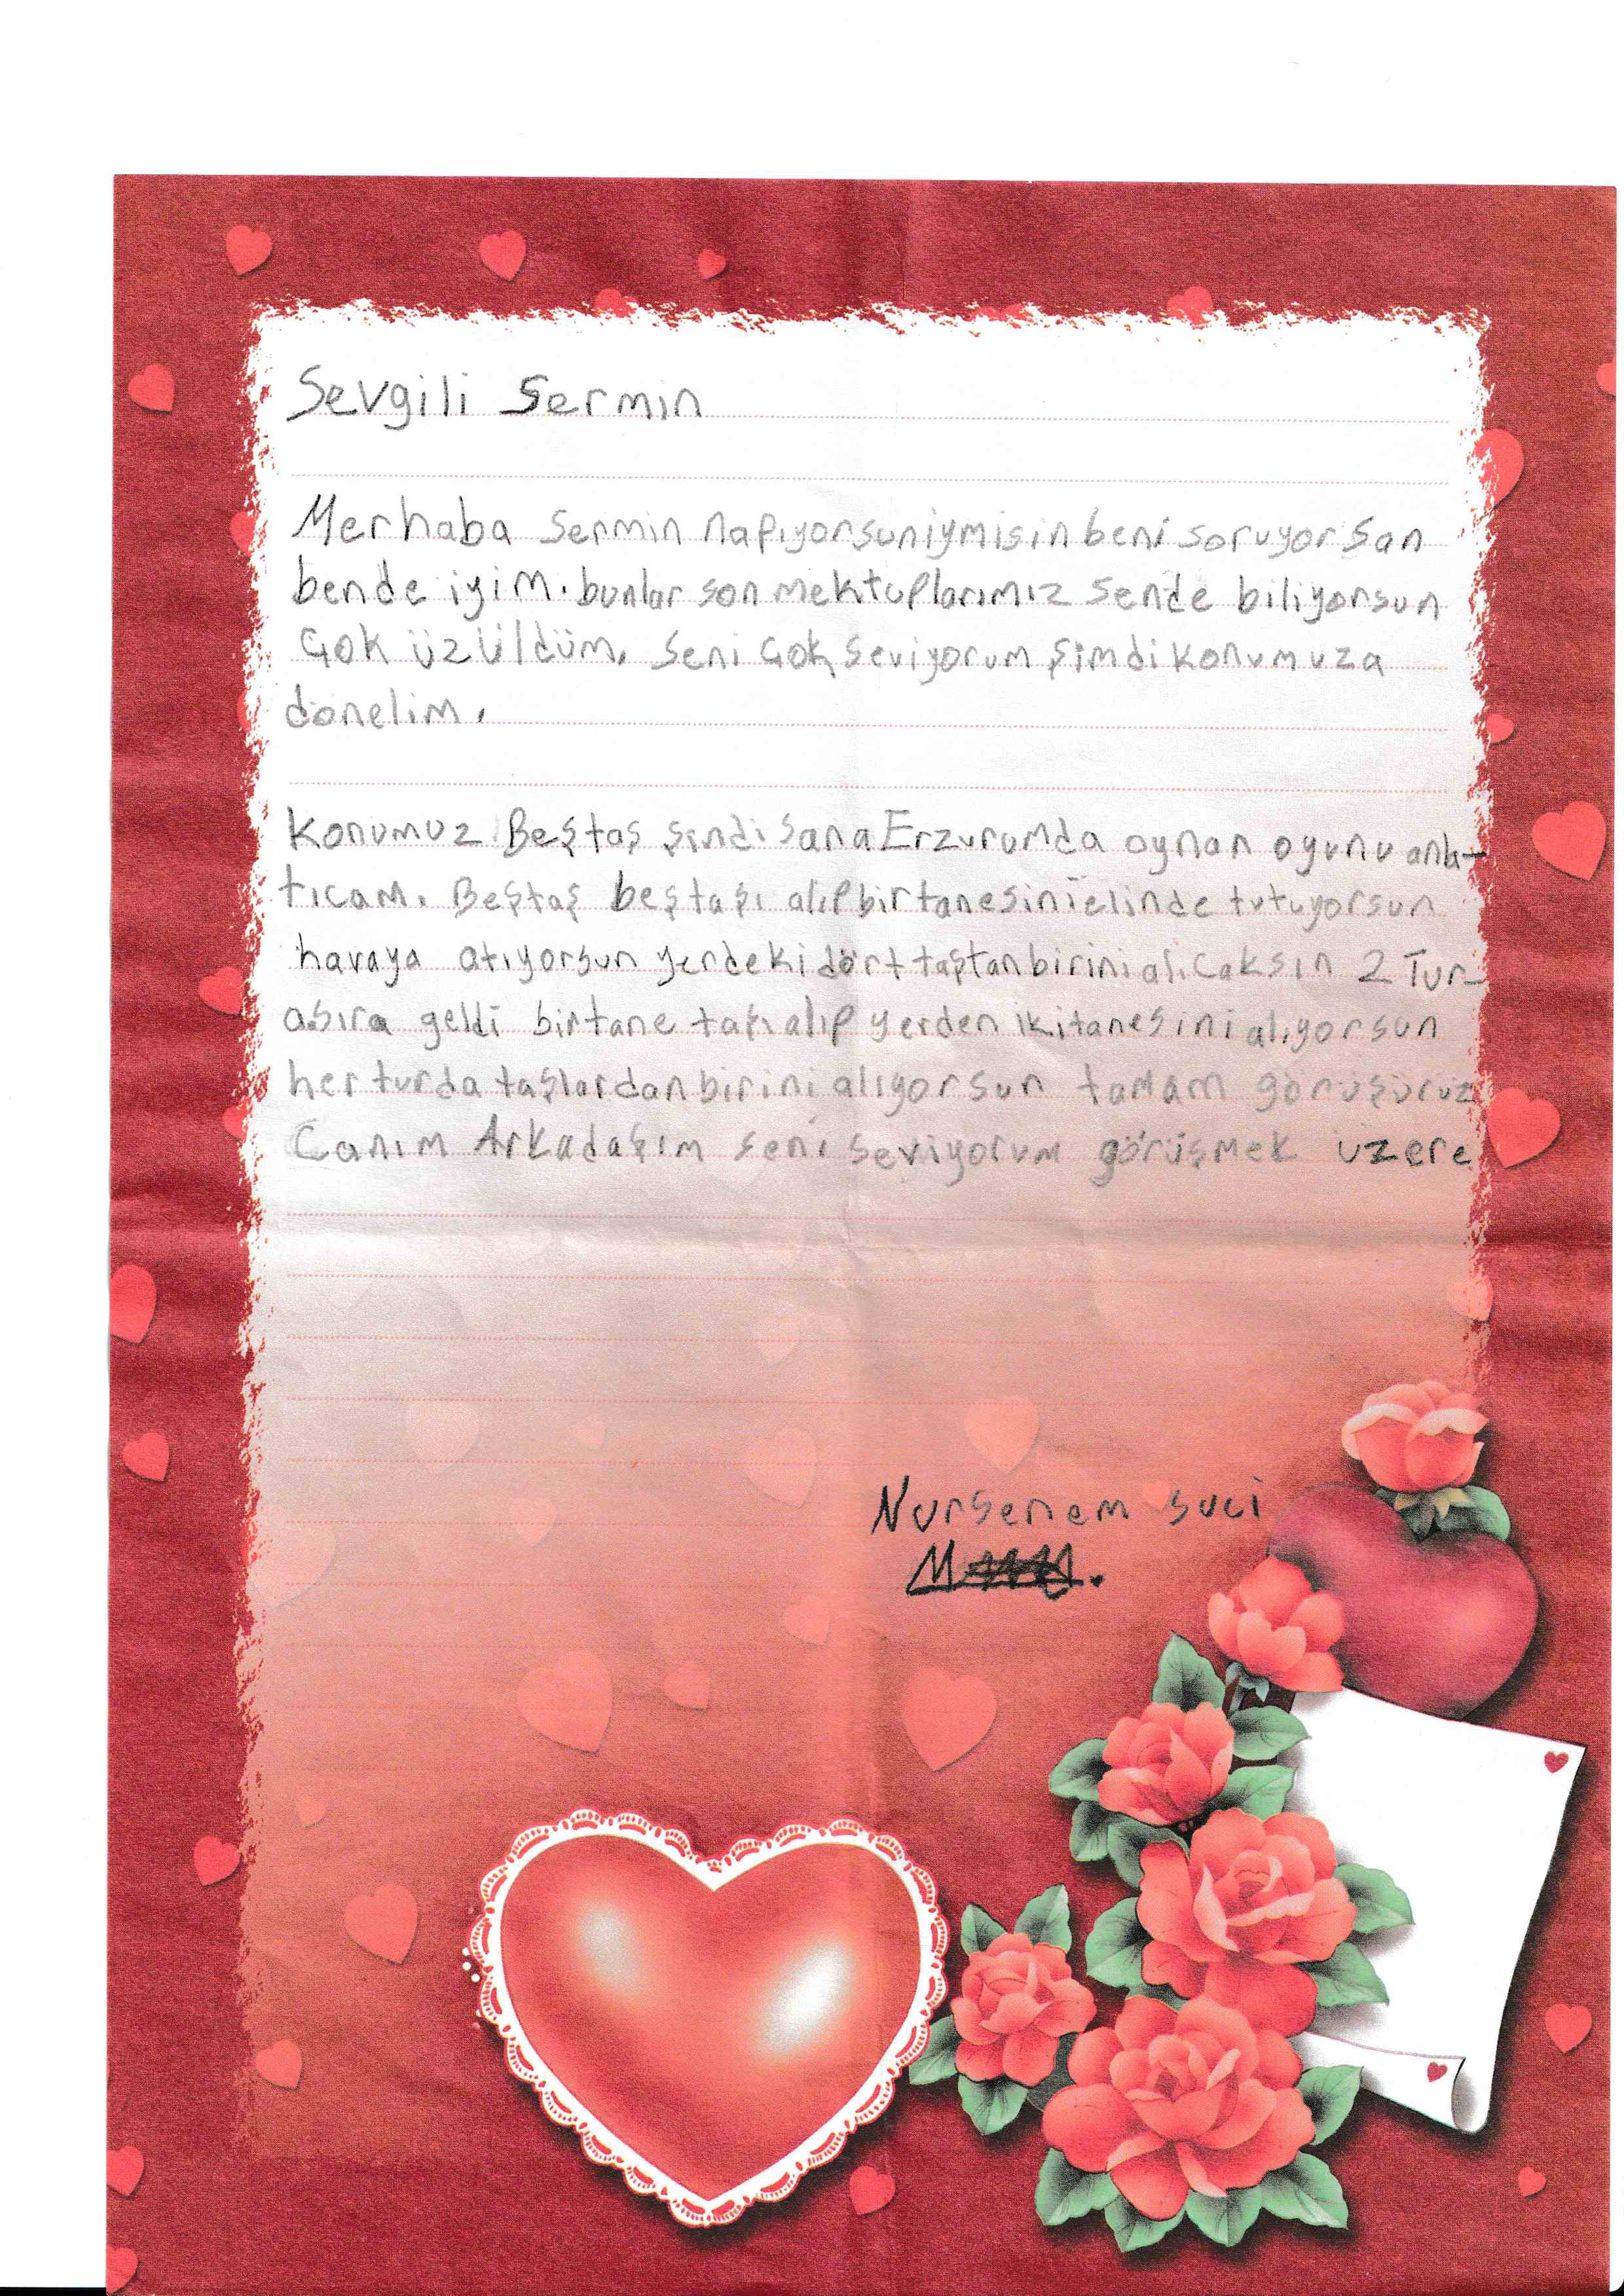 Sevgili Sermin
Merhaba Sermin napıyorsun iymisin beni soruyorsan
bende iyim. bunlar son mektuplarımız sende biliyorsun
Çok üzüldüm. Seni Çok Seviyorum şimdi konumuza
dönelim.
Konumuz Beştaş şindi sana Erzurumda oynan oyunu anla-
tıcam. Beştaş beştaşı alıp bir tanesini elinde tutuyorsun
havaya atıyorsun yerdeki dört taştan birini alıcaksın 2 Tur-
a sıra geldi bir tane taşı alıp yerden iki tanesini alıyorsun
her turda taşlardan birini alıyorsun tamam görüşürüz
Canım Arkadaşım seni seviyorum görüşmek üzere
Nursenem suci